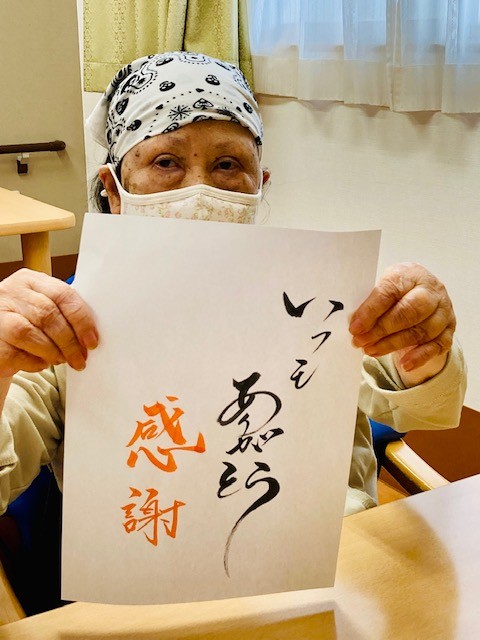 いつも
ありがとう
感謝